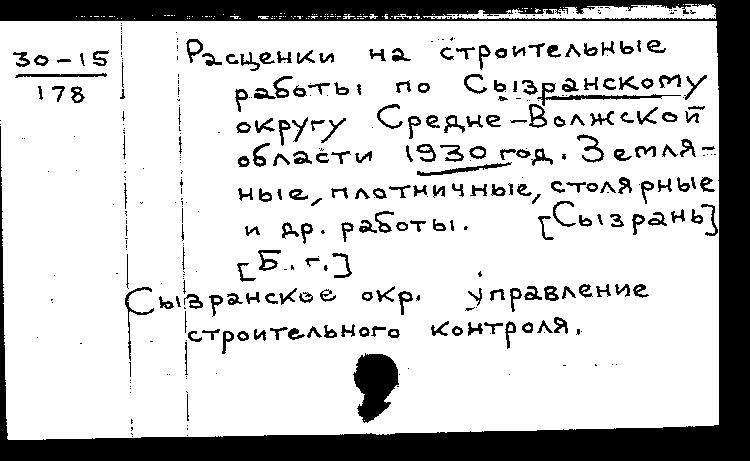 30-15
178
Расценки на строительные
работы по Сызранскому
округу Средне-Волжской
области 1930 год. Земля-
ные, плотничные, столярные
и др. работы. [Сызрань]
[Б. г.]
Сызранское окр. управление
строительного контроля.